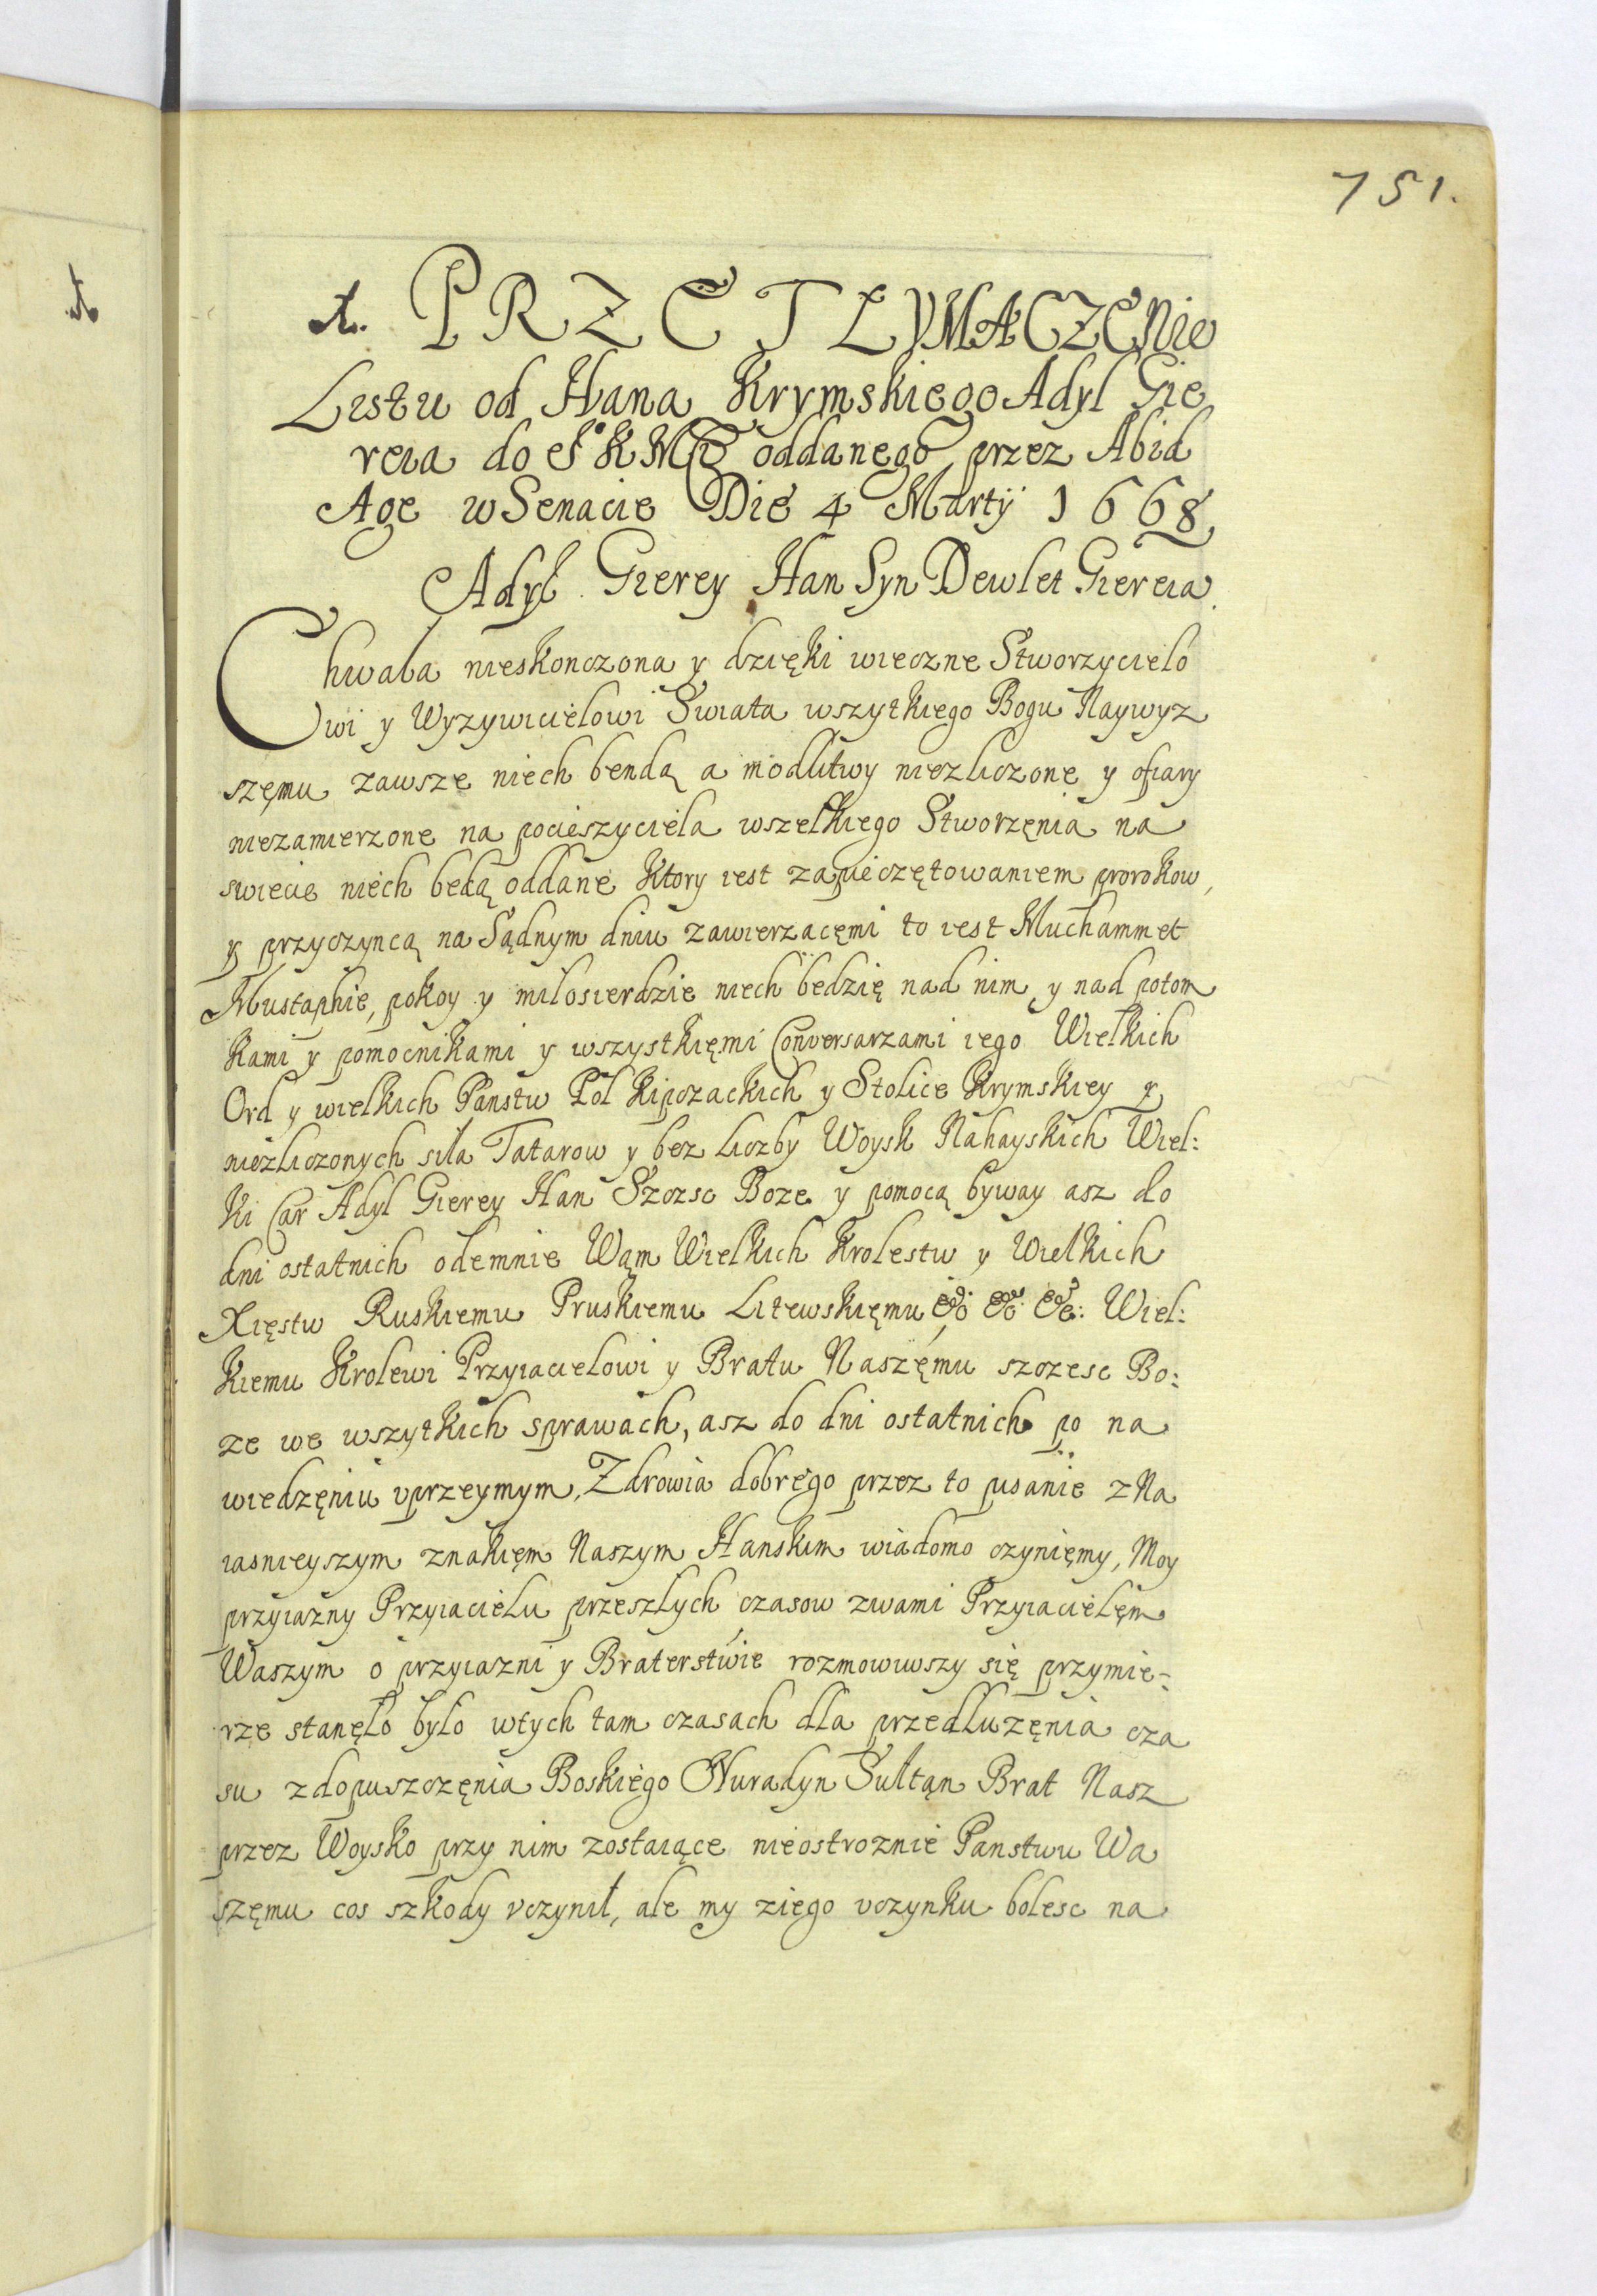 751.
A. PRZETLYMACZENie
Listu od Hana Krymskiego Adyl Gie
reia do J K Mci oddanego przez Abid
Age w Senacie Die 4 Martÿ 1668
Adyl Gierey Han Syn Dewlet Giereia
Chwala nieskonczona y dzięki wieczne Stworzycielo
wi y Wyzywicielowi Swiata wszytkiego Bogu Naywyz
szęmu zawsze niech bendą a modlitwy niezliczone y ofiary
niezamierzone na pocieszyciela wszelkiego Stworzęnia na
swiecie niech bedą oddane Ktory iest zapieczętowaniem prorokow,
y przyczyncą na Sądnym dniu zawierzacęmi to iest Muchammet
Mustaphie, pokoy y milosierdzie niech bedzię nad nim y nad potom
kami y pomocnikami y wszystkięmi Conversarzami iego Wielkich
Ord y wielkich Panstw Pol Kipczackich y Stolice Krymskiey y
niezliczonych siła Tatarow y bez liczby Woysk Nahayskich Wiel:
ki Car Adyl Gierey Han Szczsc Boze y pomocą byway asz do
dni ostatnich odemnie Wąm Wielkich Krolestw y Wielkich
Xięstw Ruskiemu Pruskiemu Litewskięmu &c &c &c: Wiel:
kiemu Krolewi Przyiacielowi y Bratu Naszęmu szczesc Bo:
ze we wszytkich sprawach, asz do dni ostatnich po na
wiedzęniu uprzeymym, Zdrowia dobrego przez to pisanie z Na
iasnieyszym znakięm Naszym Hanskim wiadomo czynięmy, Moy
przyiazny Przyiacielu przeszlych czasow zwami Przyiacielęm
Waszym o przyiazni y Braterstwie rozmowiwszy się przymie-
rze stanęlo bylo wtych tam czasach dla przedluzęnia cza
su zdopuszczęnia Boskiego Nuradyn Sultąn Brat Nasz
przez Woysko przy nim zostaiące nieostroznie Panstwu Wa
szęmu cos szkody vczynił, ale my ziego vczynku bolesc na